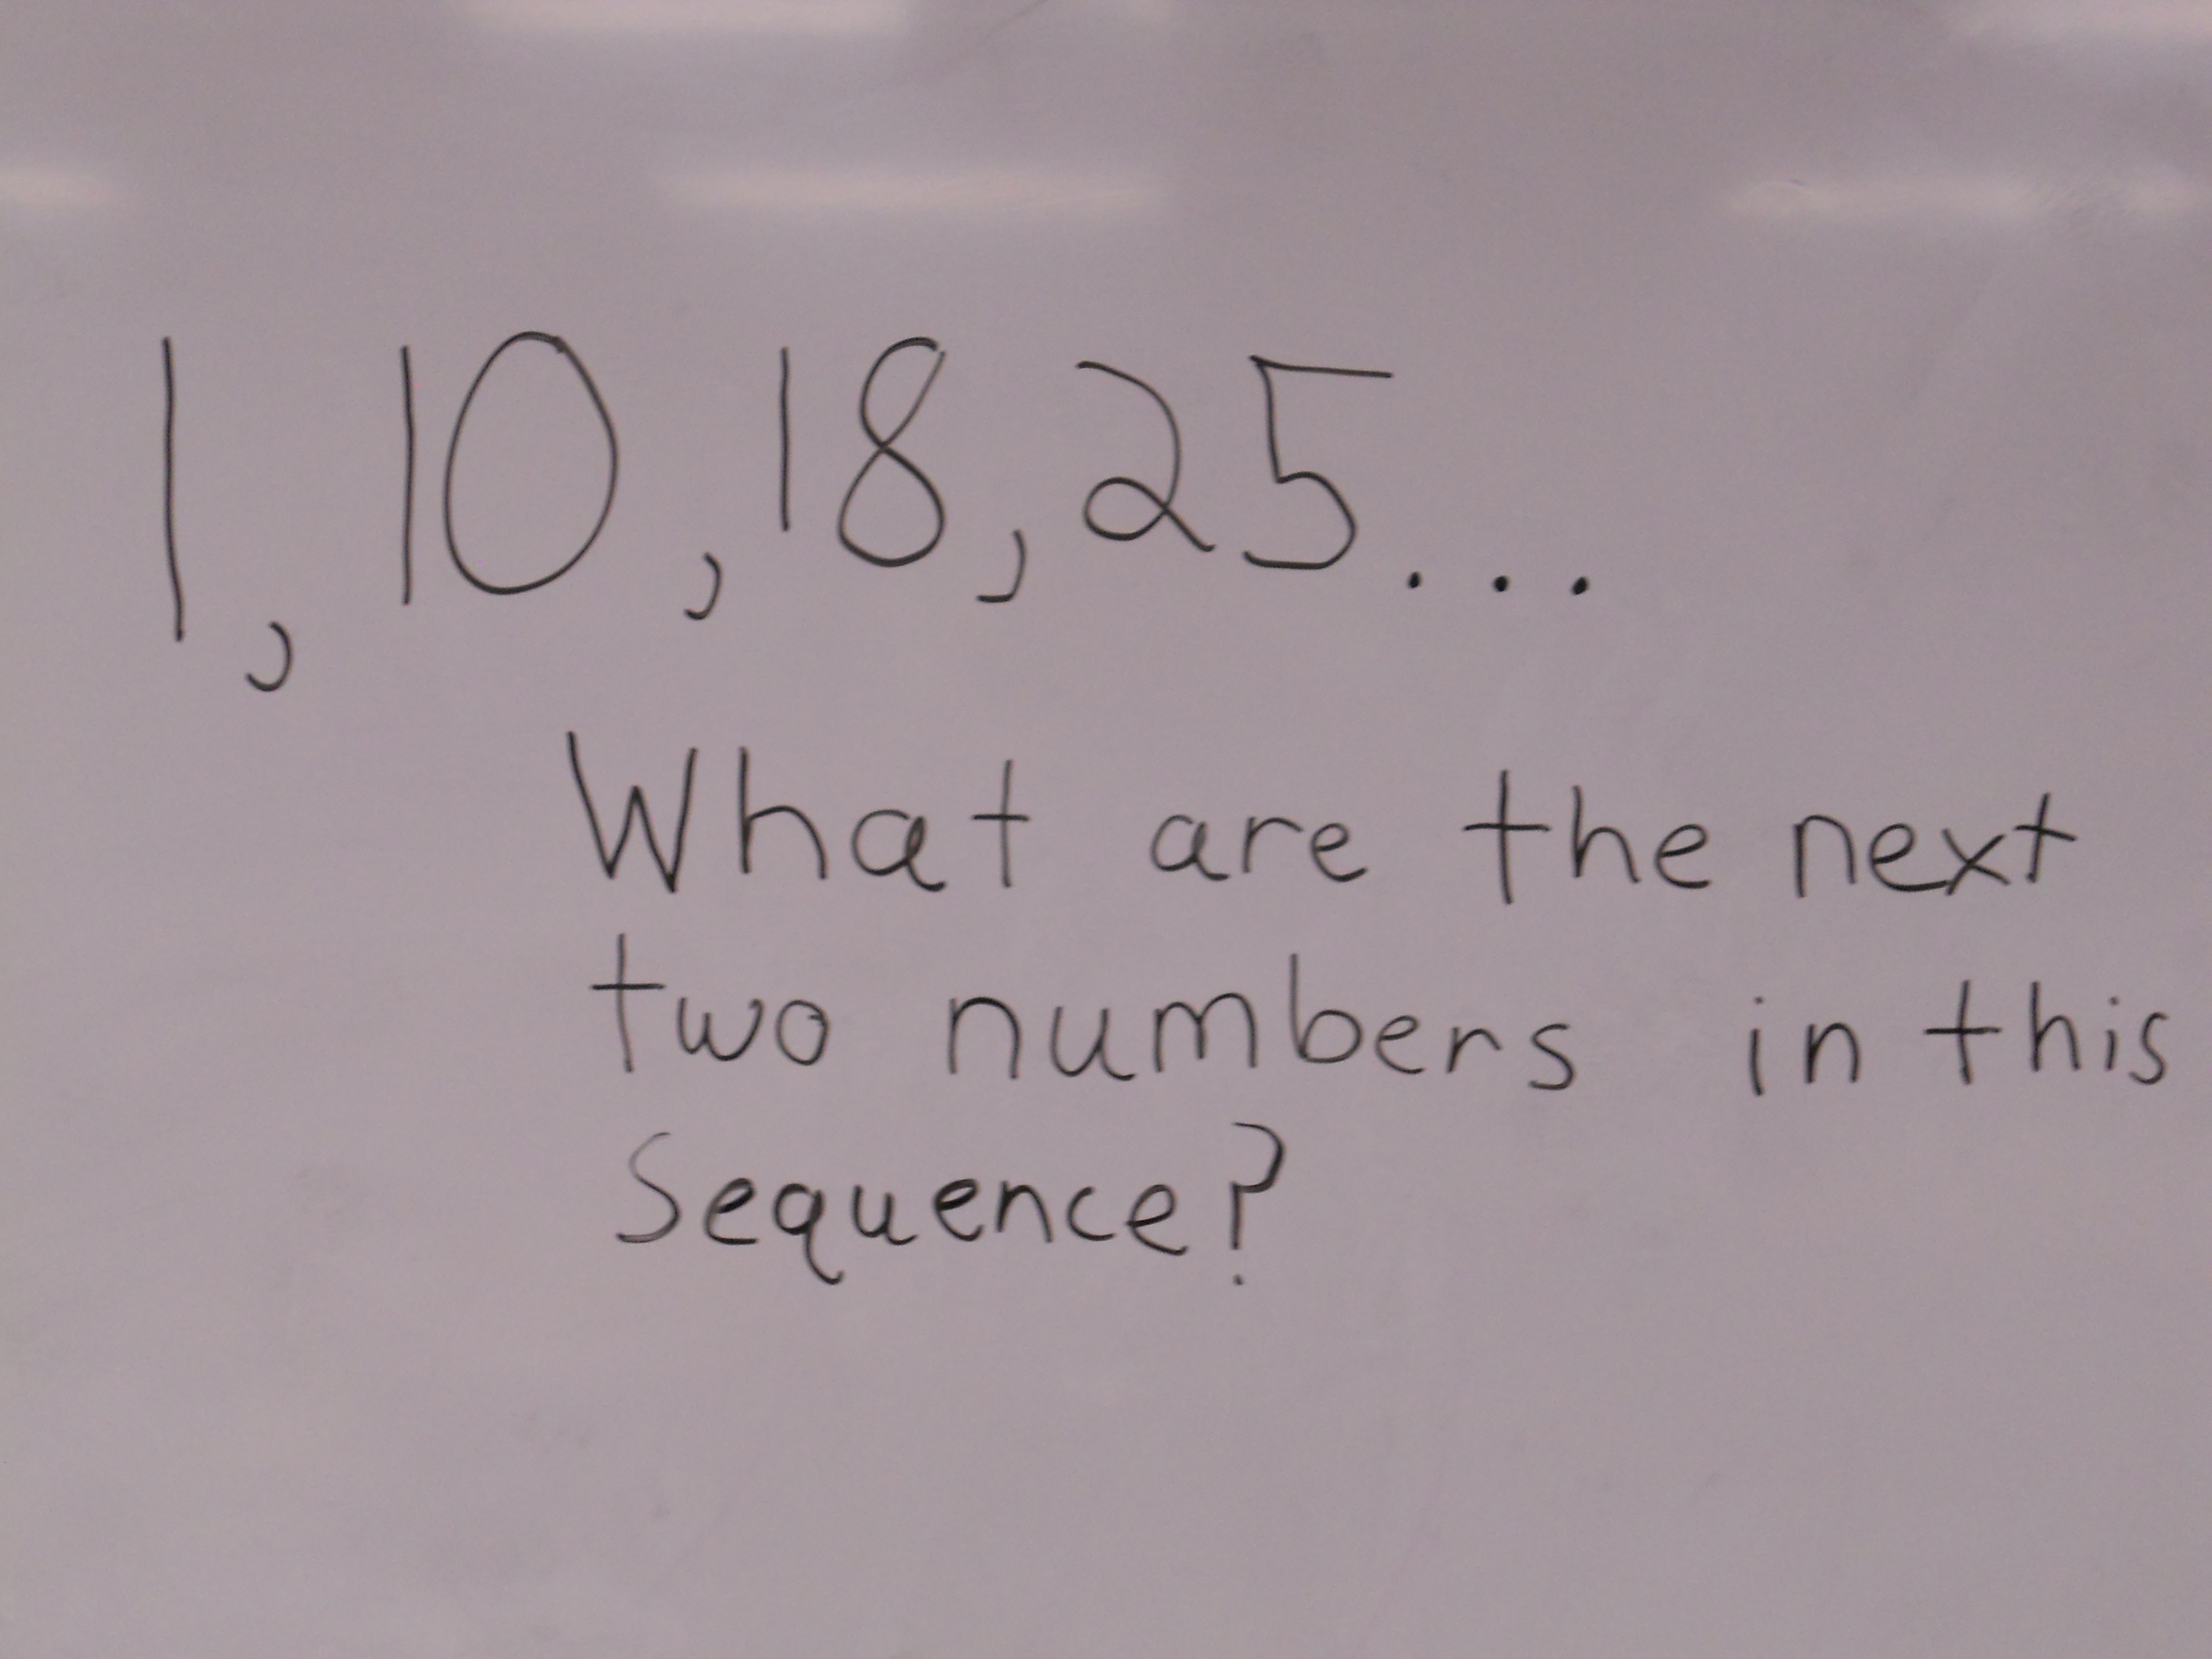 1, 10, 18, 25...
What are the next
two numbers in this
Sequence?